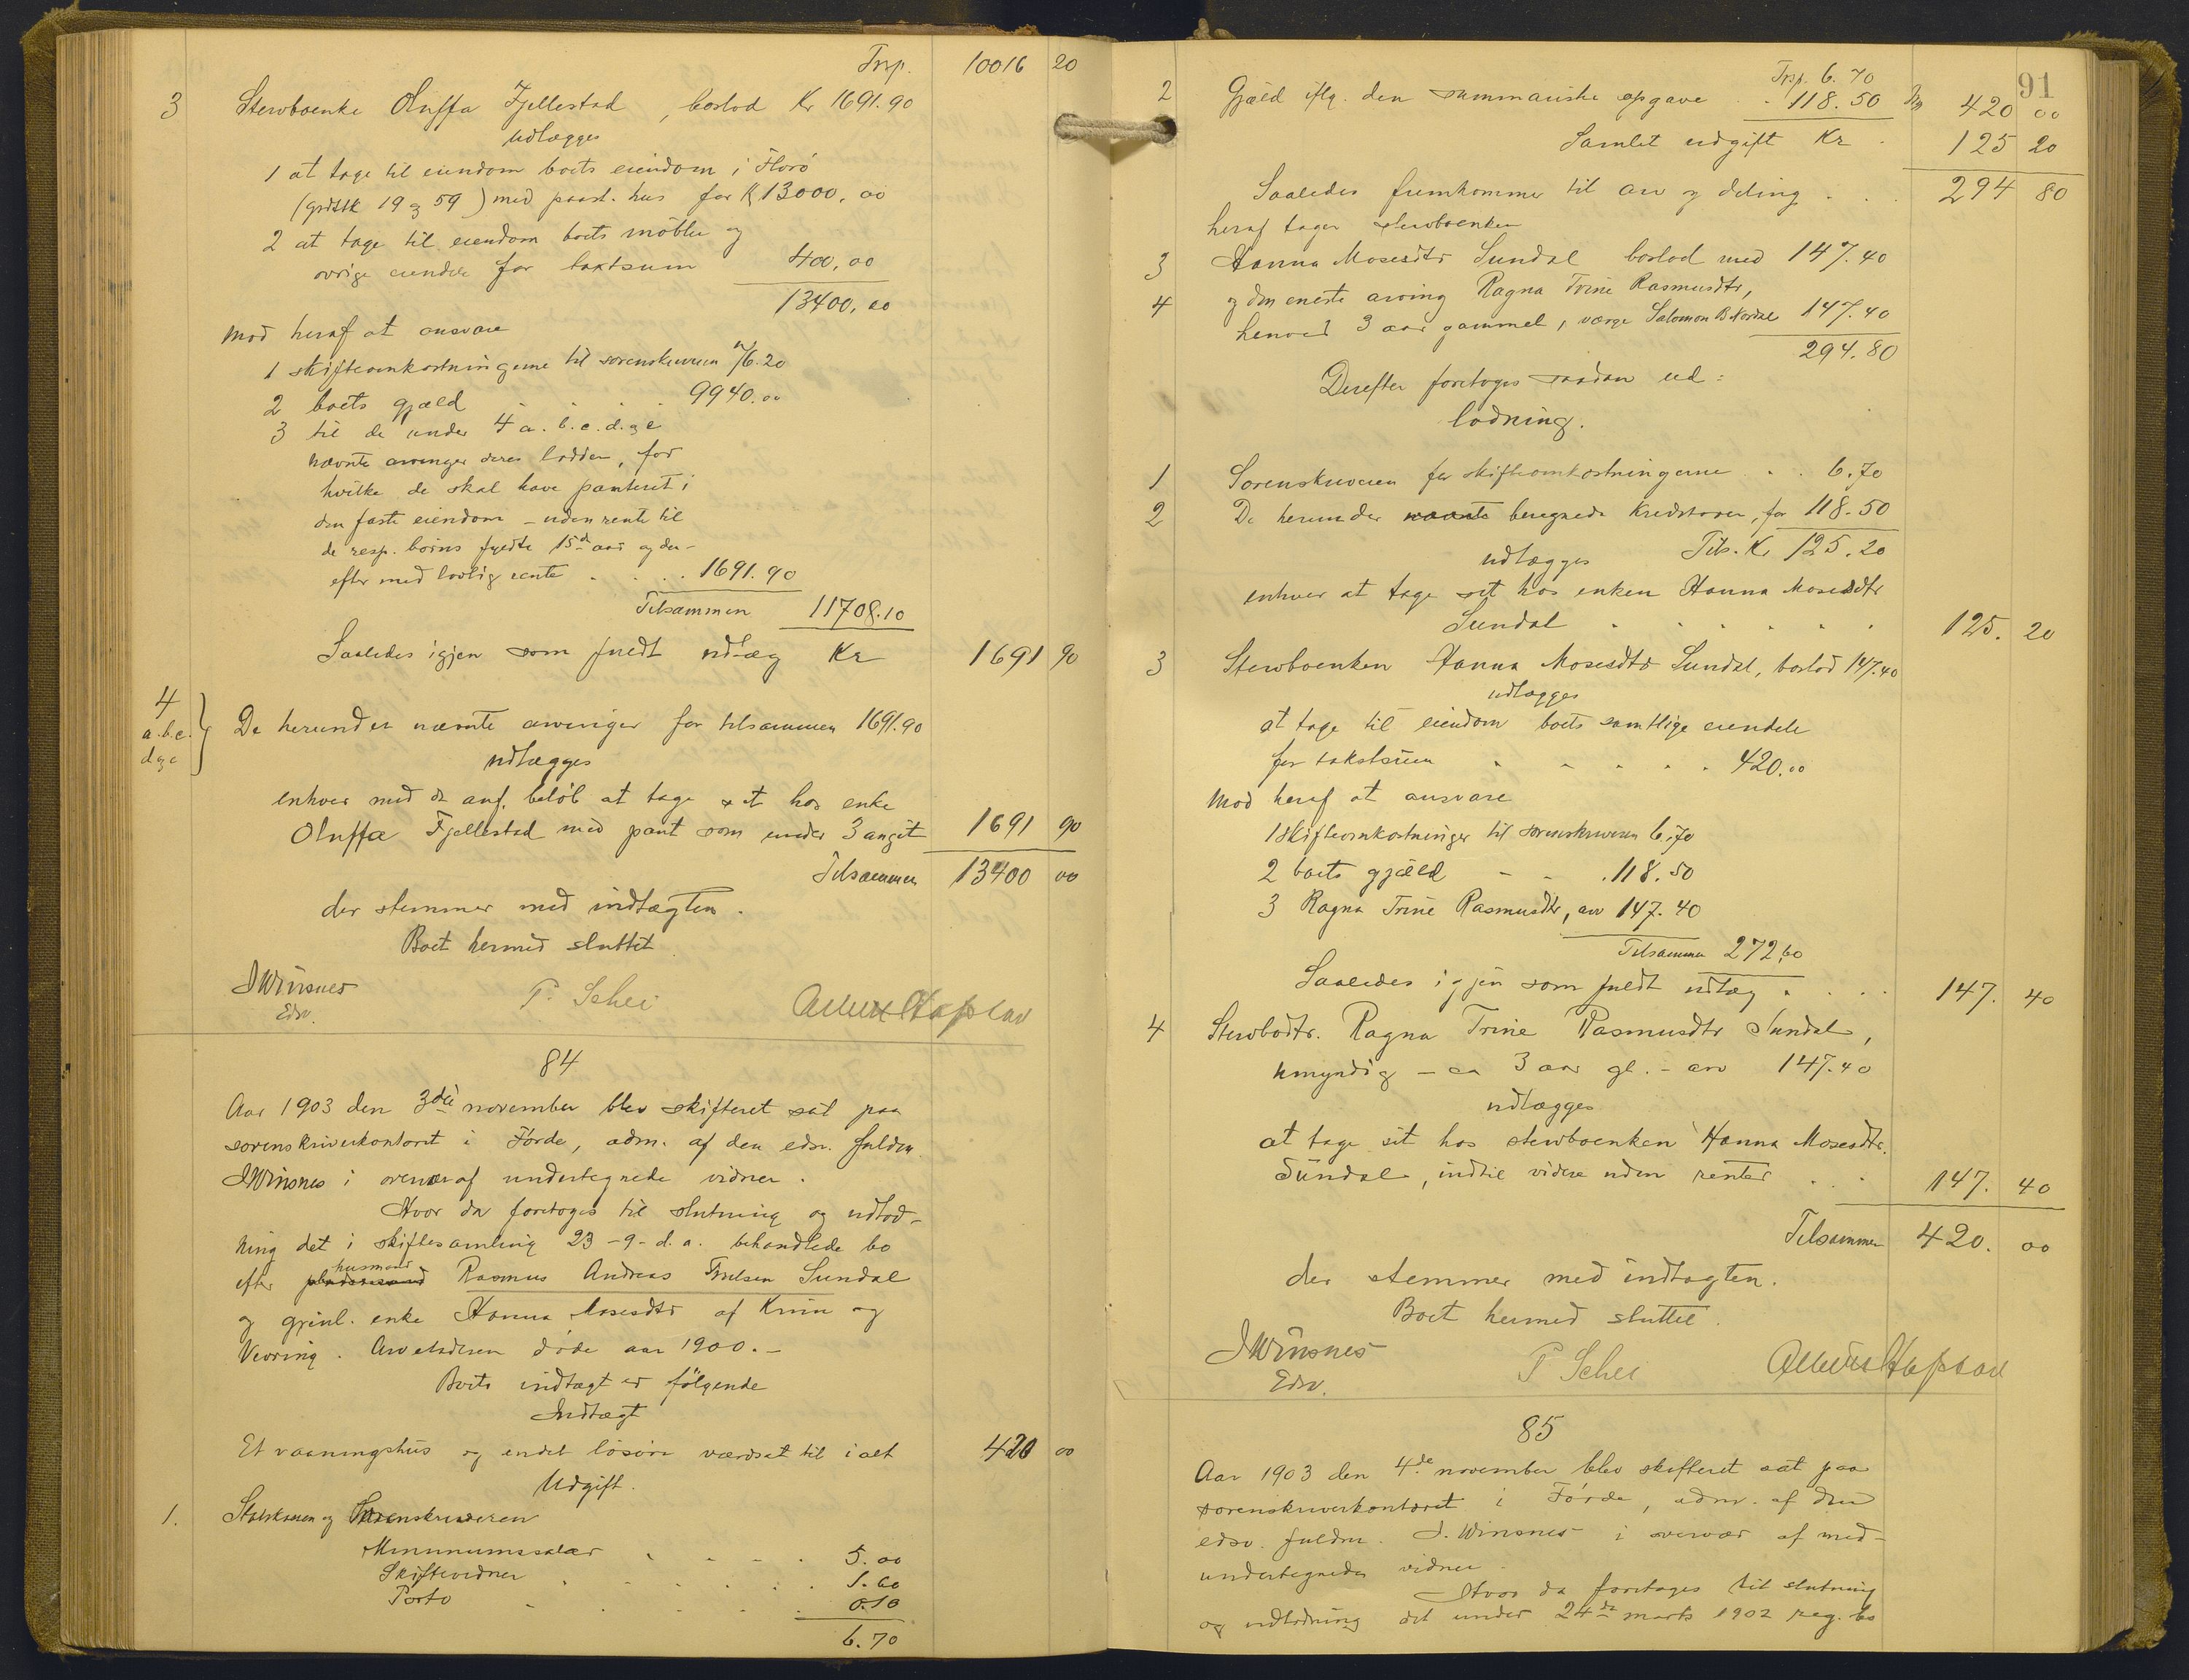 Trsp. 10016 20
3 Stervboenke Oluffa Fjellestad, boslod Kr 1691.90
udlægges
1 at tage til eiendom boets eiendom i Florø
(grdstk 19 og 59) med paast. hus for K 13000,00
2 at tage til eiendom boets møbler og
øvrige eiendele for taxtsum 400,00
13400,00
mod heraf at ansvare
1 skifteomkostningerne til sorenskriveren 76.20
2 boets gjæld . . . 9940.00
3 til de under 4 a. b. c. d. og e
nævnte arvinger deres lodder, for
hvilke de skal have panteret i
den faste eiendom – uden rente til
de resp. børns fyldte 15de aar og der-
efter med lovlig rente . . . . 1691.90
Tilsammen 11708.10
Saaledes igjen som fuldt udlæg Kr 1691 90
4
a. b. c.
d og e
De herunder nævnte arvinger for tilsammen 1691.90
udlægges
enhver med de anf. beløb at tage sit hos enke
Oluffa Fjellestad med pant som under 3 angit 1691 90
Tilsammen 13400 00
der stemmer med indtægten.
Boet hermed sluttet.
JWinsnes P. Schei
Edsv.
84
Aar 1903 den 3die november blev skifteret sat paa
sorenskriverkontoret i Førde, adm. af den edsv. fuldm.
JWinsnes i overvær af undertegnede vidner.
Hvor da foretoges til slutning og udlod-
ning det i skiftesamling 23-9-d.a. behandlede bo
husmand
efter Rasmus Andreas Sundal
og gjenl. enke Hanna Mosesdtr af Kinn og
Vevring. Arveladeren døde aar 1900.–
Boets indtægt er følgende
Indtægt
Et vaaningshus og endel løsøre værdsat til i alt 420 00
Udgift.
1. Statskassen og Sorenskriveren
Minimumssalær . . . . 5.00
Skiftevidner . . . . . 1.60
Porto . . . . . 0.10
6.70
91
Trsp. 6.70
2 Gjæld iflg. den summariske opgave . . 118.50 Trsp 420 00
Samlet udgift Kr . 125 20
Saaledes fremkommer til arv og deling . . . 294 80
heraf tager stervboenken
3 Hanna Mosesdtr Sundal boslod med 147.40
4 og den eneste arving Ragna Trine Rasmusdtr,
henved 3 aar gammel, værge Salomon B Nordal 147.40
294.80
Derefter foretoges saadan ud:
lodning.
1 Sorenskriveren for skifteomkostningerne . . 6.70
2 De herunder nævnte beregnede kreditorer, for 118.50
udlægges Tils. Kr 125.20
enhver at tage sit hos enken Hanna Mosesdtr
Sundal . . . . . . 125. 20
3 Stervboenken Hanna Mosesdtr Sundal, boslod 147.40
udlægges
at tage til eiendom boets samtlige eiendele
for takstsum . . . . . 420.00
mod heraf at ansvare
1 skifteomkostninger til sorenskriveren 6.70
2 boets gjæld - - . 118.50
3 Ragna Trine Rasmusdtr, arv 147.40
Tilsammen 272.60
Saaledes igjen som fuldt udlæg . . . . 147. 40
4 Stervbodtr. Ragna Trine Rasmusdtr Sundal,
umyndig – ca 3 aar gl. – arv 147.40
udlægges
at tage sit hos stervboenken Hanna Mosesdtr.
Sundal, indtil videre uden renter . . . 147. 40
Tilsammen 420. 00
der stemmer med indtægten.
Boet hermed sluttet.
JWinsnes P Schei
Edsv.
85
Aar 1903 den 4de november blev skifteret sat paa
sorenskriverkontoret i Førde, adm. af den
edsv. fuldm. J. Winsnes i overvær af med-
undertegnede vidner.
Hvor da foretoges til slutning
og udlodning det under 24de marts 1902 reg. bo